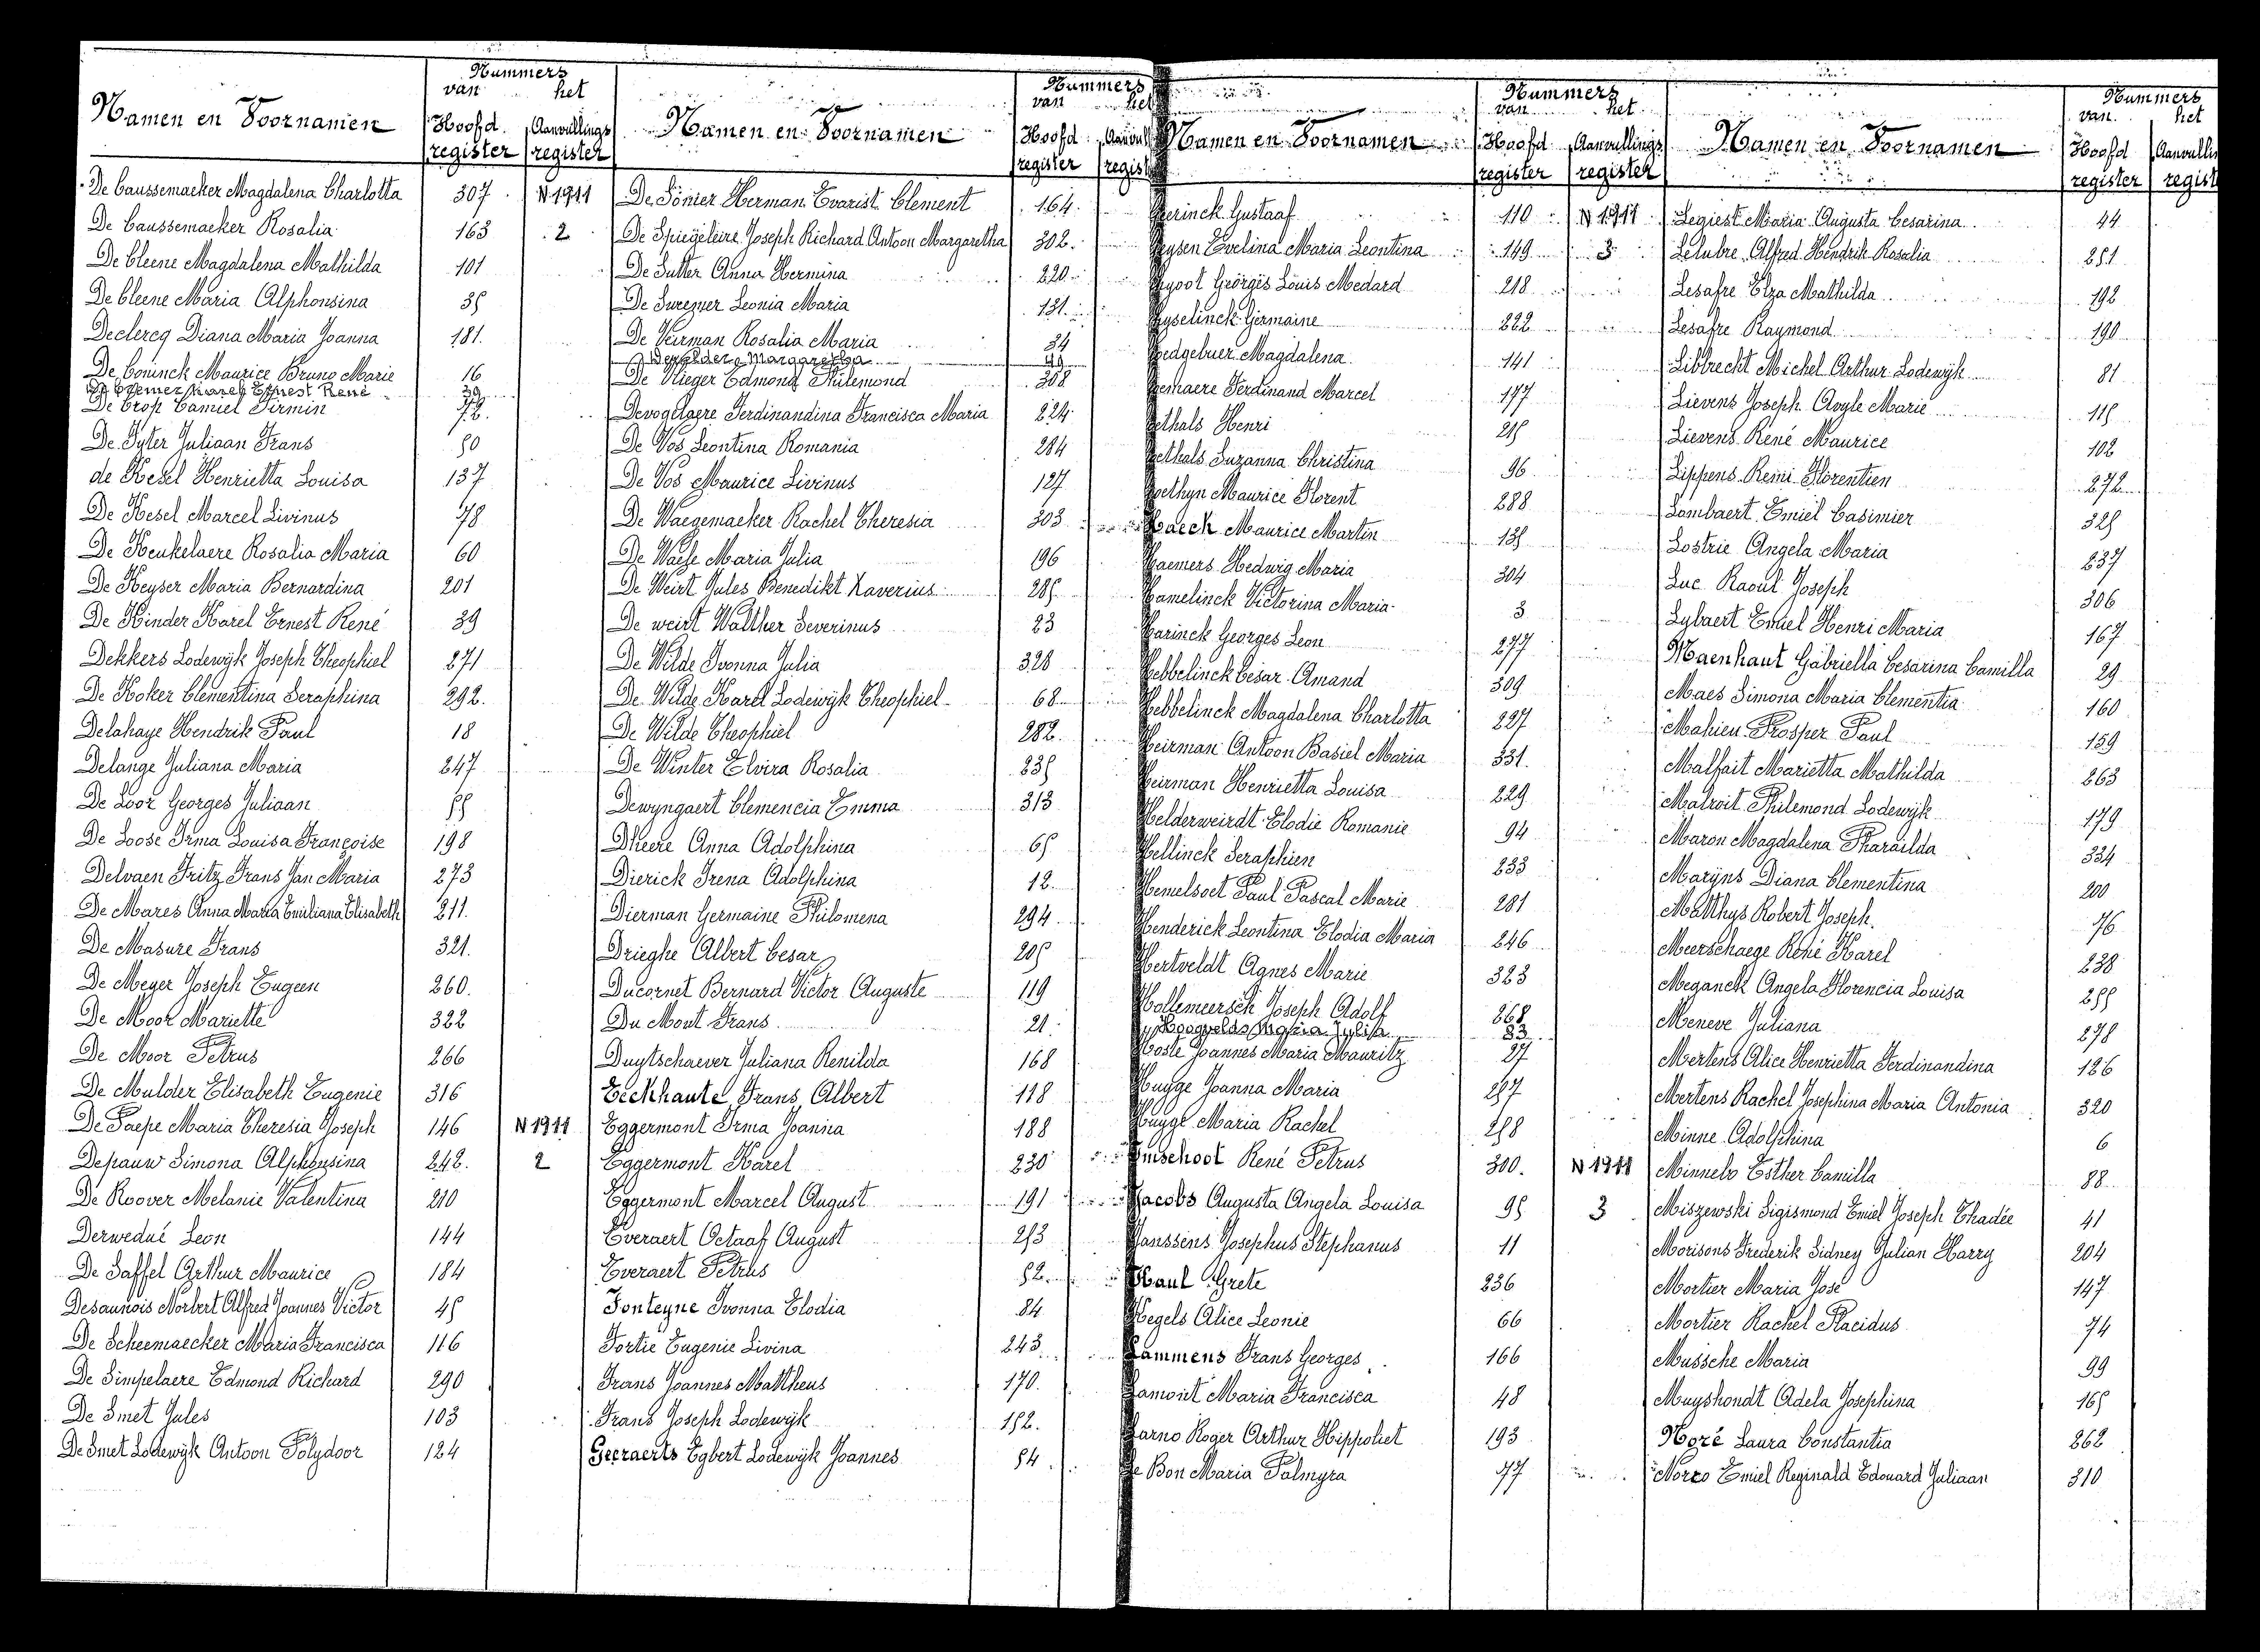 Namen en Voornamen
Nummers
van het
Hoofd register
Aanvullings register
De Caussemaeker Magdalena Charlotta 307 N 1911
De Caussemaeker Rosalia 163 2
De Cleene Magdalena Mathilda 101
De Cleene Maria Alphonsina 35
Declercq Diana Maria Joanna 181
De Coninck Maurice Bruno Marie 16
De Cremer Karel Ernest René 39
De Crop Camiel Firmin 72
De Fyter Juliaan Frans 50
de Kesel Henrietta Louisa 137
De Kesel Marcel Livinus 78
De Keukelaere Rosalia Maria 60
De Keyser Maria Bernardina 201
De Kinder Karel Ernest René 39
Dekkers Lodewijk Joseph Theophiel 271
De Koker Clementina Seraphina 292
Delahaye Hendrik Paul 18
Delange Juliana Maria 247
De Loor Georges Juliaan 55
De Loose Irma Louisa Françoise 198
Delvaen Fritz Frans Jan Maria 273
De Mares Anna Maria Emiliana Elisabeth 211
De Masure Frans 321
De Meyer Joseph Eugeen 260
De Moor Mariette 322
De Moor Petrus 266
De Mulder Elisabeth Eugenie 316
De Paepe Maria Theresia Joseph 146 N 1911
Depauw Simona Alphonsina 242 2
De Roover Melanie Valentina 210
Derwedué Leon 144
De Saffel Arthur Maurice 184
Desaunois Norbert Alfred Joannes Victor 45
De Scheemaecker Maria Francisca 116
De Simpelaere Edmond Richard 290
De Smet Jules 103
De Smet Lodewijk Antoon Polydoor 124
Namen en Voornamen
Nummers
van het
Hoofd register
De Sonier Herman Evarist Clement 164
De Spiegeleire Joseph Richard Antoon Margaretha 302
De Sutter Anna Hermina 220
De Surgmer Leonia Maria 131
De Veirman Rosalia Maria 34
Margaretha 99
De Vlieger Edmond Philemond 308
Devogelaere Ferdinandina Francisca Maria 224
De Vos Leontina Romania 284
De Vos Maurice Livinus 127
De Waegemaeker Rachel Theresia 303
De Waele Maria Julia 196
De Weirt Jules Benedikt Xaverius 285
De weirt Walther Severinus 23
De Wilde Ivonna Julia 328
De Wilde Karel Lodewijk Theophiel 68
De Wilde Theophiel 282
De Winter Elvira Rosalia 235
Dewyngaert Clemencia Emma 313
Dheere Anna Adolphina 65
Dierick Irena Adolphina 12
Dierman Germaine Philomena 294
Drieghe Albert Cesar 205
Ducornet Bernard Victor Auguste 119
Du Mont Frans 21
Duytschaever Juliana Renilda 168
Eeckhaute Frans Albert 118
Eggermont Irma Joanna 188
Eggermont Karel 230
Eggermont Marcel August 191
Everaert Octaaf August 253
Everaert Petrus 52
Fonteyne Ivonna Elodia 84
Fortie Eugenie Livina 243
Frans Joannes Mattheus 170
Frans Joseph Lodewijk 152
Geeraerts Egbert Lodewijk Joannes 54
Namen en Voornamen
Nummers
van het
Hoofd register
Aanvullings register
Gerinck Gustaaf 110 N 1911
Geysen Evelina Maria Leontina 149 3
Georges Louis Medard 218
Gyselinck Germaine 222
Magdalena 141
Ferdinand Marcel 177
Gethals Henri 215
Gethals Suzanna Christina 96
Goethyn Maurice Florent 288
Haeck Maurice Martin 135
Haemers Hedwig Maria 304
Hamelinck Victorina Maria 3
Harinck Georges Leon 277
Hebbelinck Cesar Amand 309
Hebbelinck Magdalena Charlotta 227
Heirman Antoon Basiel Maria 331
Heirman Henrietta Louisa 229
Helderweirdt Elodie Romanie 94
Hellinck Seraphien 233
Hemelsoet Paul Pascal Marie 281
Henderick Leontina Elodia Maria 246
Hertveldt Agnes Marie 323
Hollemeersch Joseph Adolf 268
Hoogvelds Maria Julia 83
Hoste Joannes Maria Mauritz 27
Huyge Joanna Maria 257
Huyge Maria Rachel 258
Imschoot René Petrus 300 N 1911
Jacobs Augusta Angela Louisa 95 3
Janssens Josephus Stephanus 11
Kaul Grete 236
Kegels Alice Leonie 66
Lammens Frans Georges 166
Lamont Maria Francisca 48
Larno Roger Arthur Hippoliet 193
Le Bon Maria Palmyra 77
Namen en Voornamen
Nummers
van het
Hoofd register
Legiest Maria Augusta Cesarina 44
Lelubre Alfred Hendrik Rosalia 251
Lesafre Elza Mathilda 192
Lesafre Raymond 190
Libbrecht Michel Arthur Lodewijk 81
Lievens Joseph Avyle Marie 115
Lievens René Maurice 102
Lippens Remi Florentien 272
Lombaert Emiel Casimier 325
Lostrie Angela Maria 237
Luc Raoul Joseph 306
Lybaert Emiel Henri Maria 167
Maenhaut Gabriella Cesarina Camilla 29
Maes Simona Maria Clementia 160
Mahieu Prosper Paul 159
Malfait Marietta Mathilda 263
Malroit Philemond Lodewijk 179
Maron Magdalena Pharaïlda 334
Maryns Diana Clementina 200
Matthys Robert Joseph 76
Meerschaege René Karel 238
Meganck Angela Florencia Louisa 255
Meneve Juliana 278
Mertens Alice Henrietta Ferdinandina 126
Mertens Rachel Josephina Maria Antonia 320
Minne Adolphina 6
Minnebo Esther Camilla 88
Miszewski Sigismond Emiel Joseph Thadée 41
Morisons Frederik Sidney Julian Harry 204
Mortier Maria José 147
Mortier Rachel Placidus 74
Mussche Maria 99
Muyshondt Adela Josephina 165
Noré Laura Constantia 262
Norro Emiel Reginald Edouard Juliaan 310